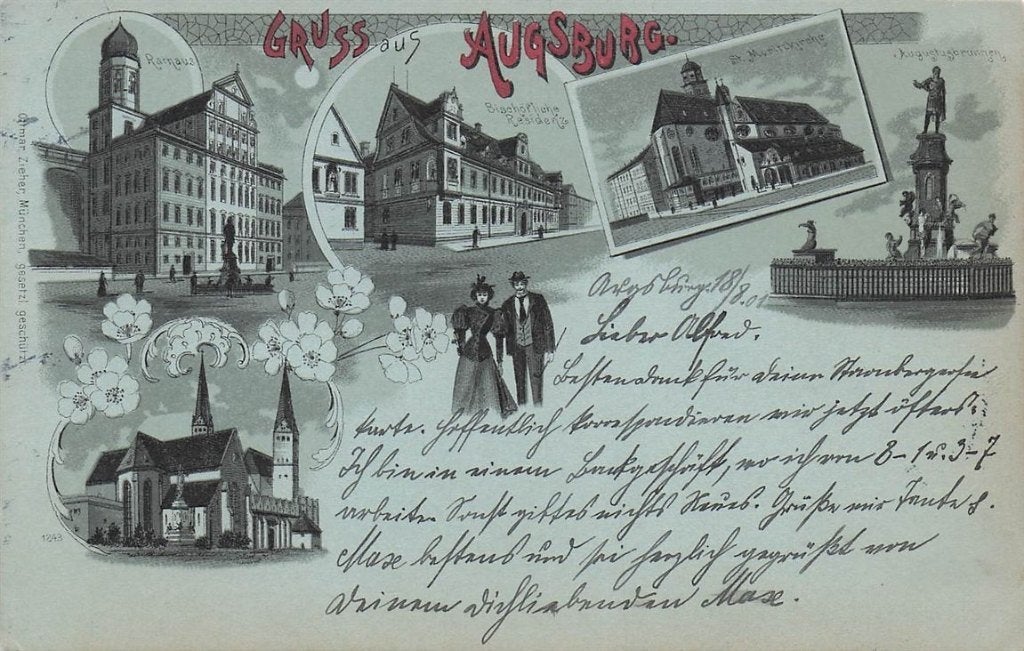 GRUSS aus AUGSBURG.
Rathaus
Bischöfliche
Residenz
St. Moritzkirche
Augustusbrunnen
Ottmar Zieher, München. gesetzl. geschützt
Augsburg 18/8.01
Lieber Alfred.
Besten dank für deine Starnbergersee
karte. Hoffentlich korrespondieren wir jetzt öfters.
Ich bin in einem Bankgeschäft, wo ich von 8-1 u. 3-7
arbeite. Sonst gibtes nichts Neues. Grüße mir Tante &
Max bestens und sei herzlich gegrüßt von
Deinem dichliebenden Max.
1243